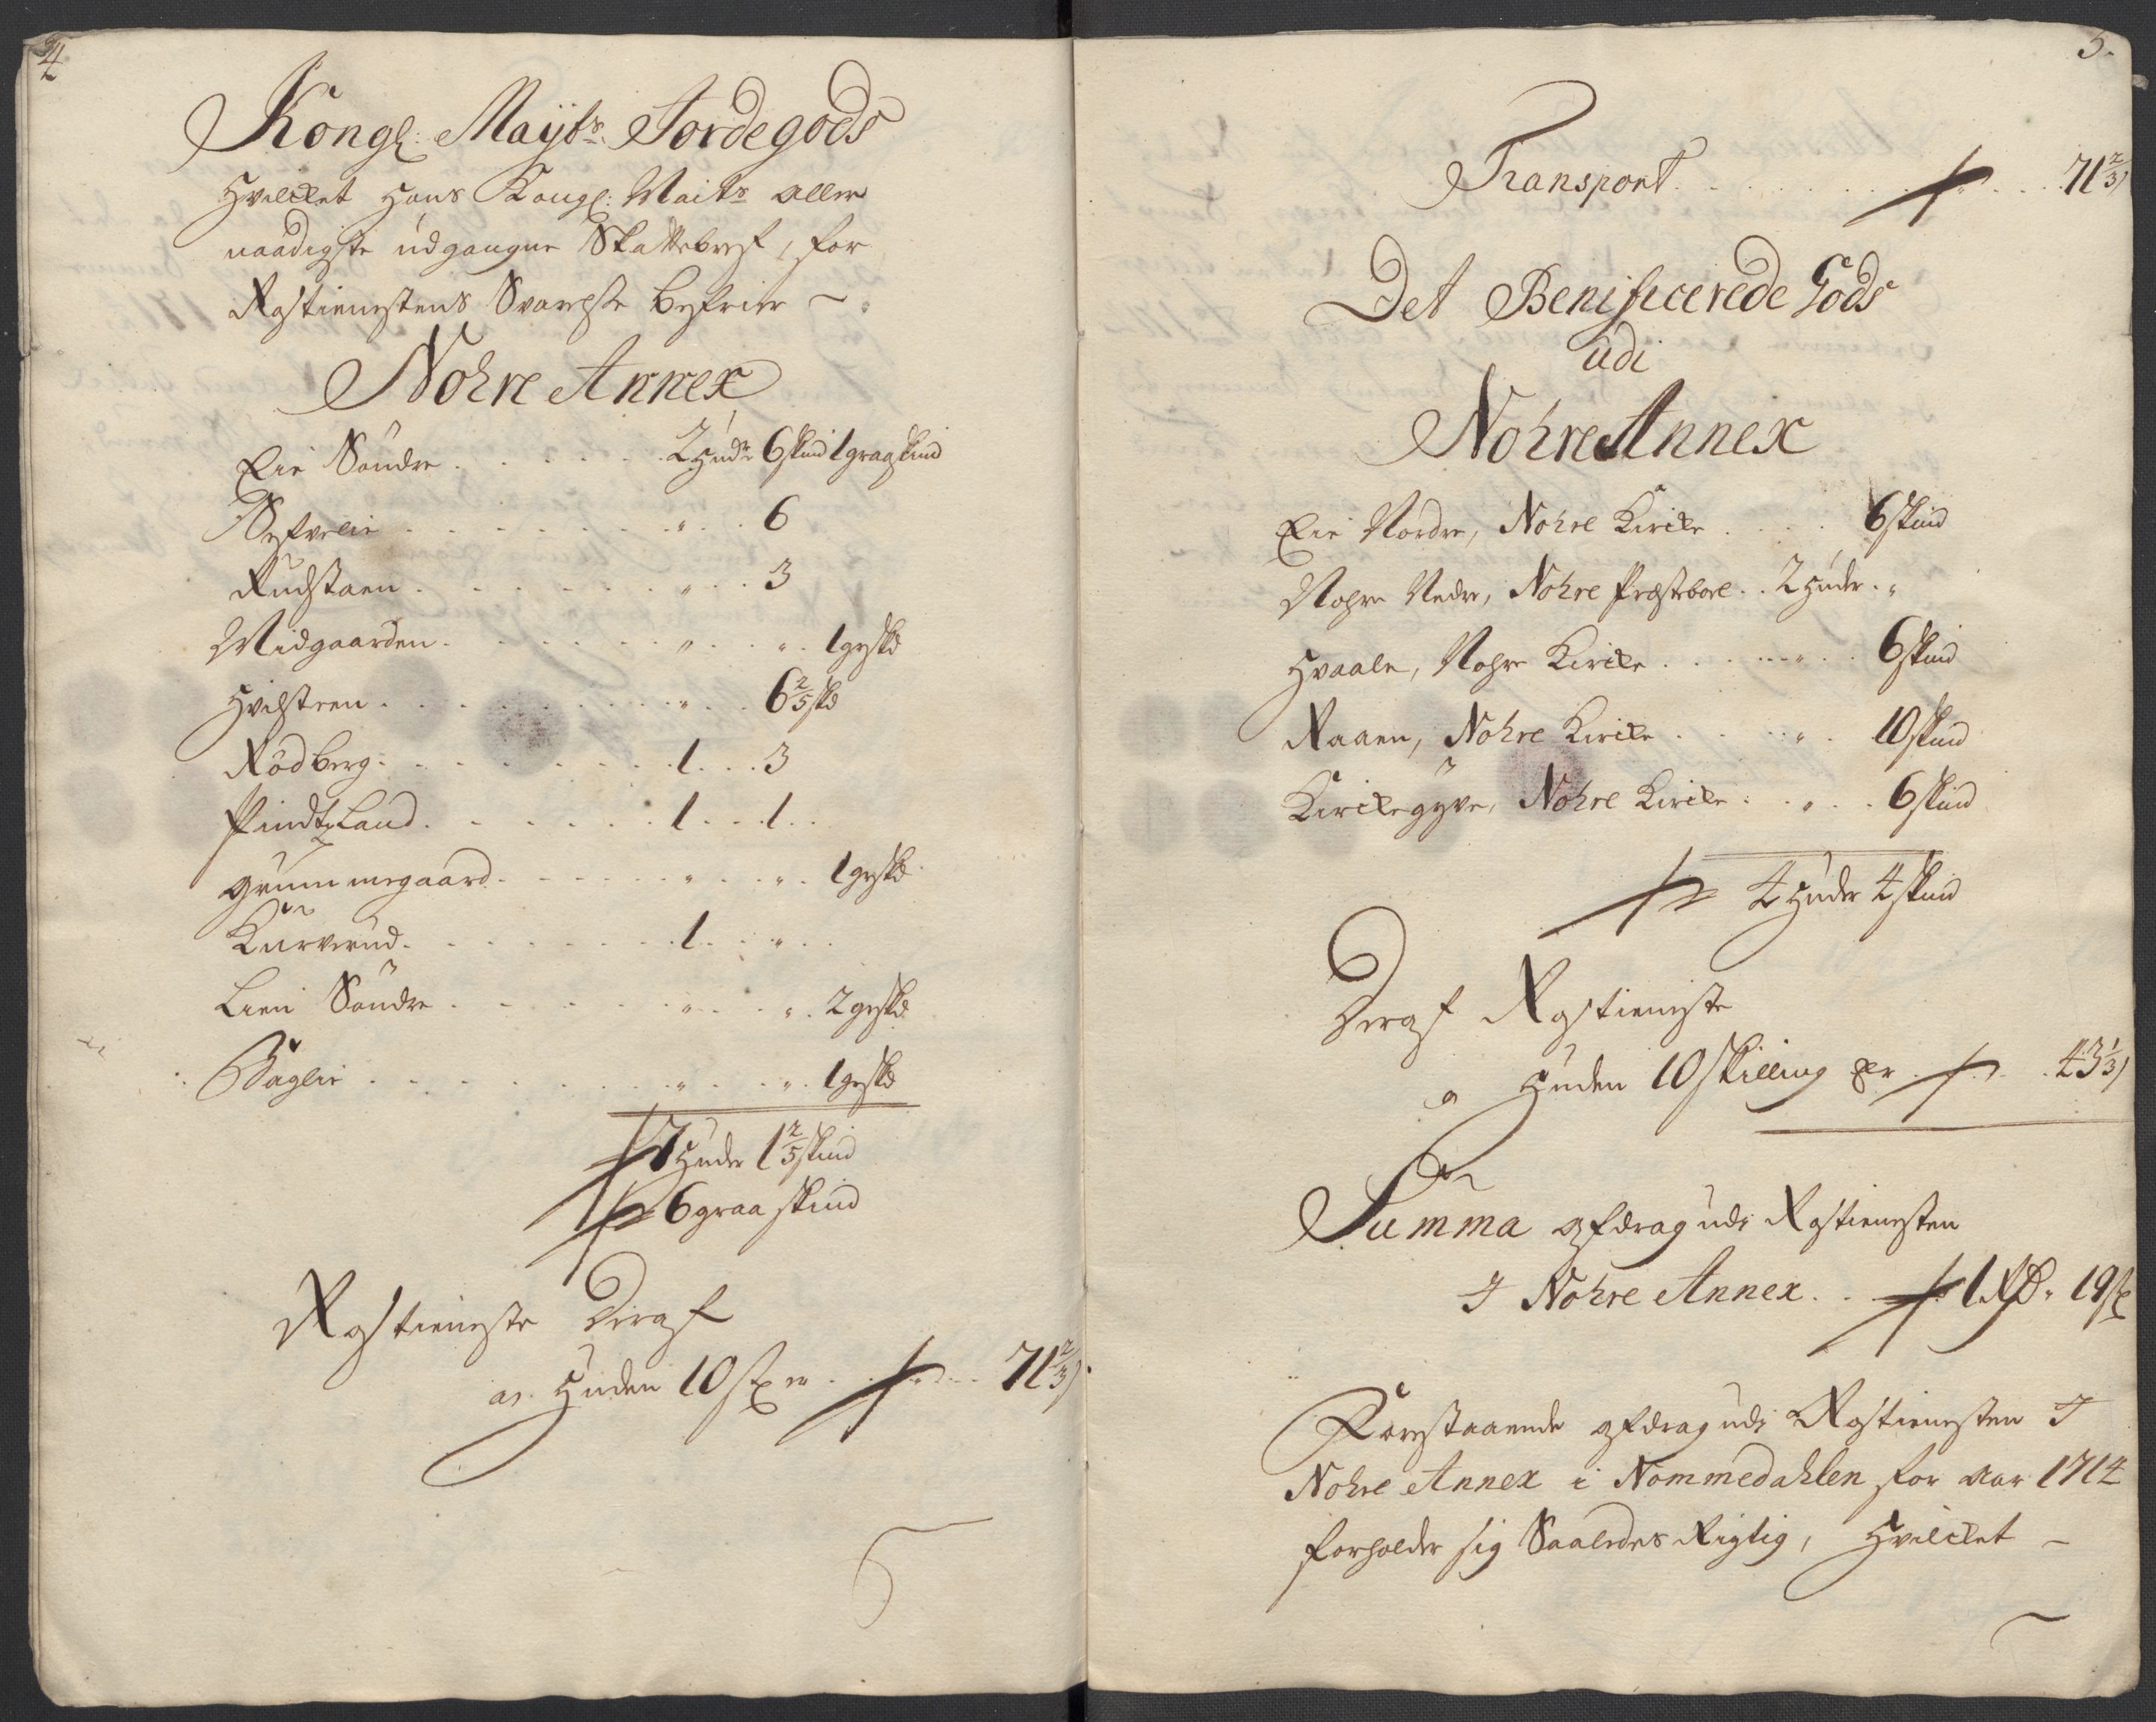 4
Kongl: Maÿts Jordegods
Hvilcket Hans Kongl: Maits aller
naadigste udgangne Skattebref, for
Rostienestens Svarelse befrier –
Nohre Annex
Eie Søndre . . . 2 hudr 6 skind 1 graaskind
Sefvelie . . . " . 6
Rudstaen . . . " . 3
Midgaarden . . . " . " . 1 grskd
Hvilsteen . . . " . 6 2/5 skd
Rødberg . . . 1 . 3
Pindtzland . . . 1 . 1 . .
Grimmegaard . . . " . " . 1 grskd
Kurverud . . . 1 . " . .
Lien Søndre . . . " . " . 2 grskd
Baglie . . . " . " . 1 grskd
7 huder 1 2/5 skind
6 graa skind
Rostieneste deraf
a huden 10 sk er . . . 71 2/3
5.
Transport . . . 71 2/3
Det Benificerede Gods
udi
Nohre Annex
Eie Nordre, Nohre Kircke . . . 6 skind
Nohre Nedre, Nohre Præstebore . . 2 huder . "
Hvaale, Nohre Kircke . . . " . . 6 skind
Raaen, Nohre Kircke . . . " . 10 skind
Kirckegyve, Nohre Kircke . . " . . 6 skind
4 huder 4 skind
Deraf Rostieneste
a huden 10 skilling er . . 43 1/3
Summa afdrag udi Rostienesten
I Nohre Annex . . 1 Rd. 19 sk
Forestaaende afdrag udi Rostienesten I
Nohre Annex i Nommedahlen for aar 1714
forholder sig Saaledes Rigtig, Hvilcket –